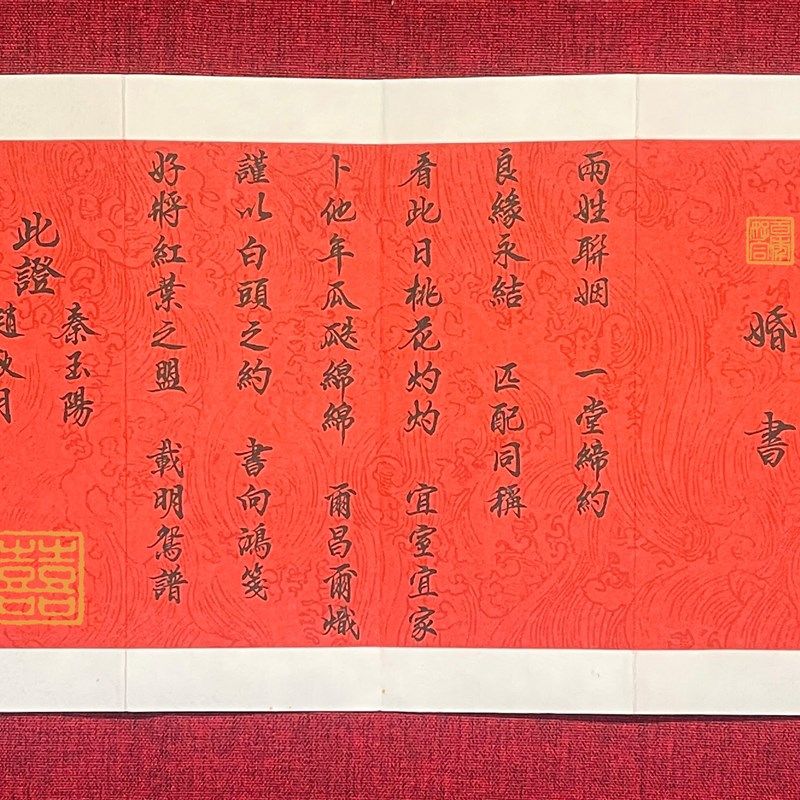 百年好合
婚書
兩姓聯姻 一堂締約
良緣永結 匹配同稱
看此日桃花灼灼 宜室宜家
卜他年瓜瓞綿綿 爾昌爾熾
謹以白頭之約 書向鴻箋
好將紅葉之盟 載明鴛譜
此證
秦玉陽
趙秋月
囍